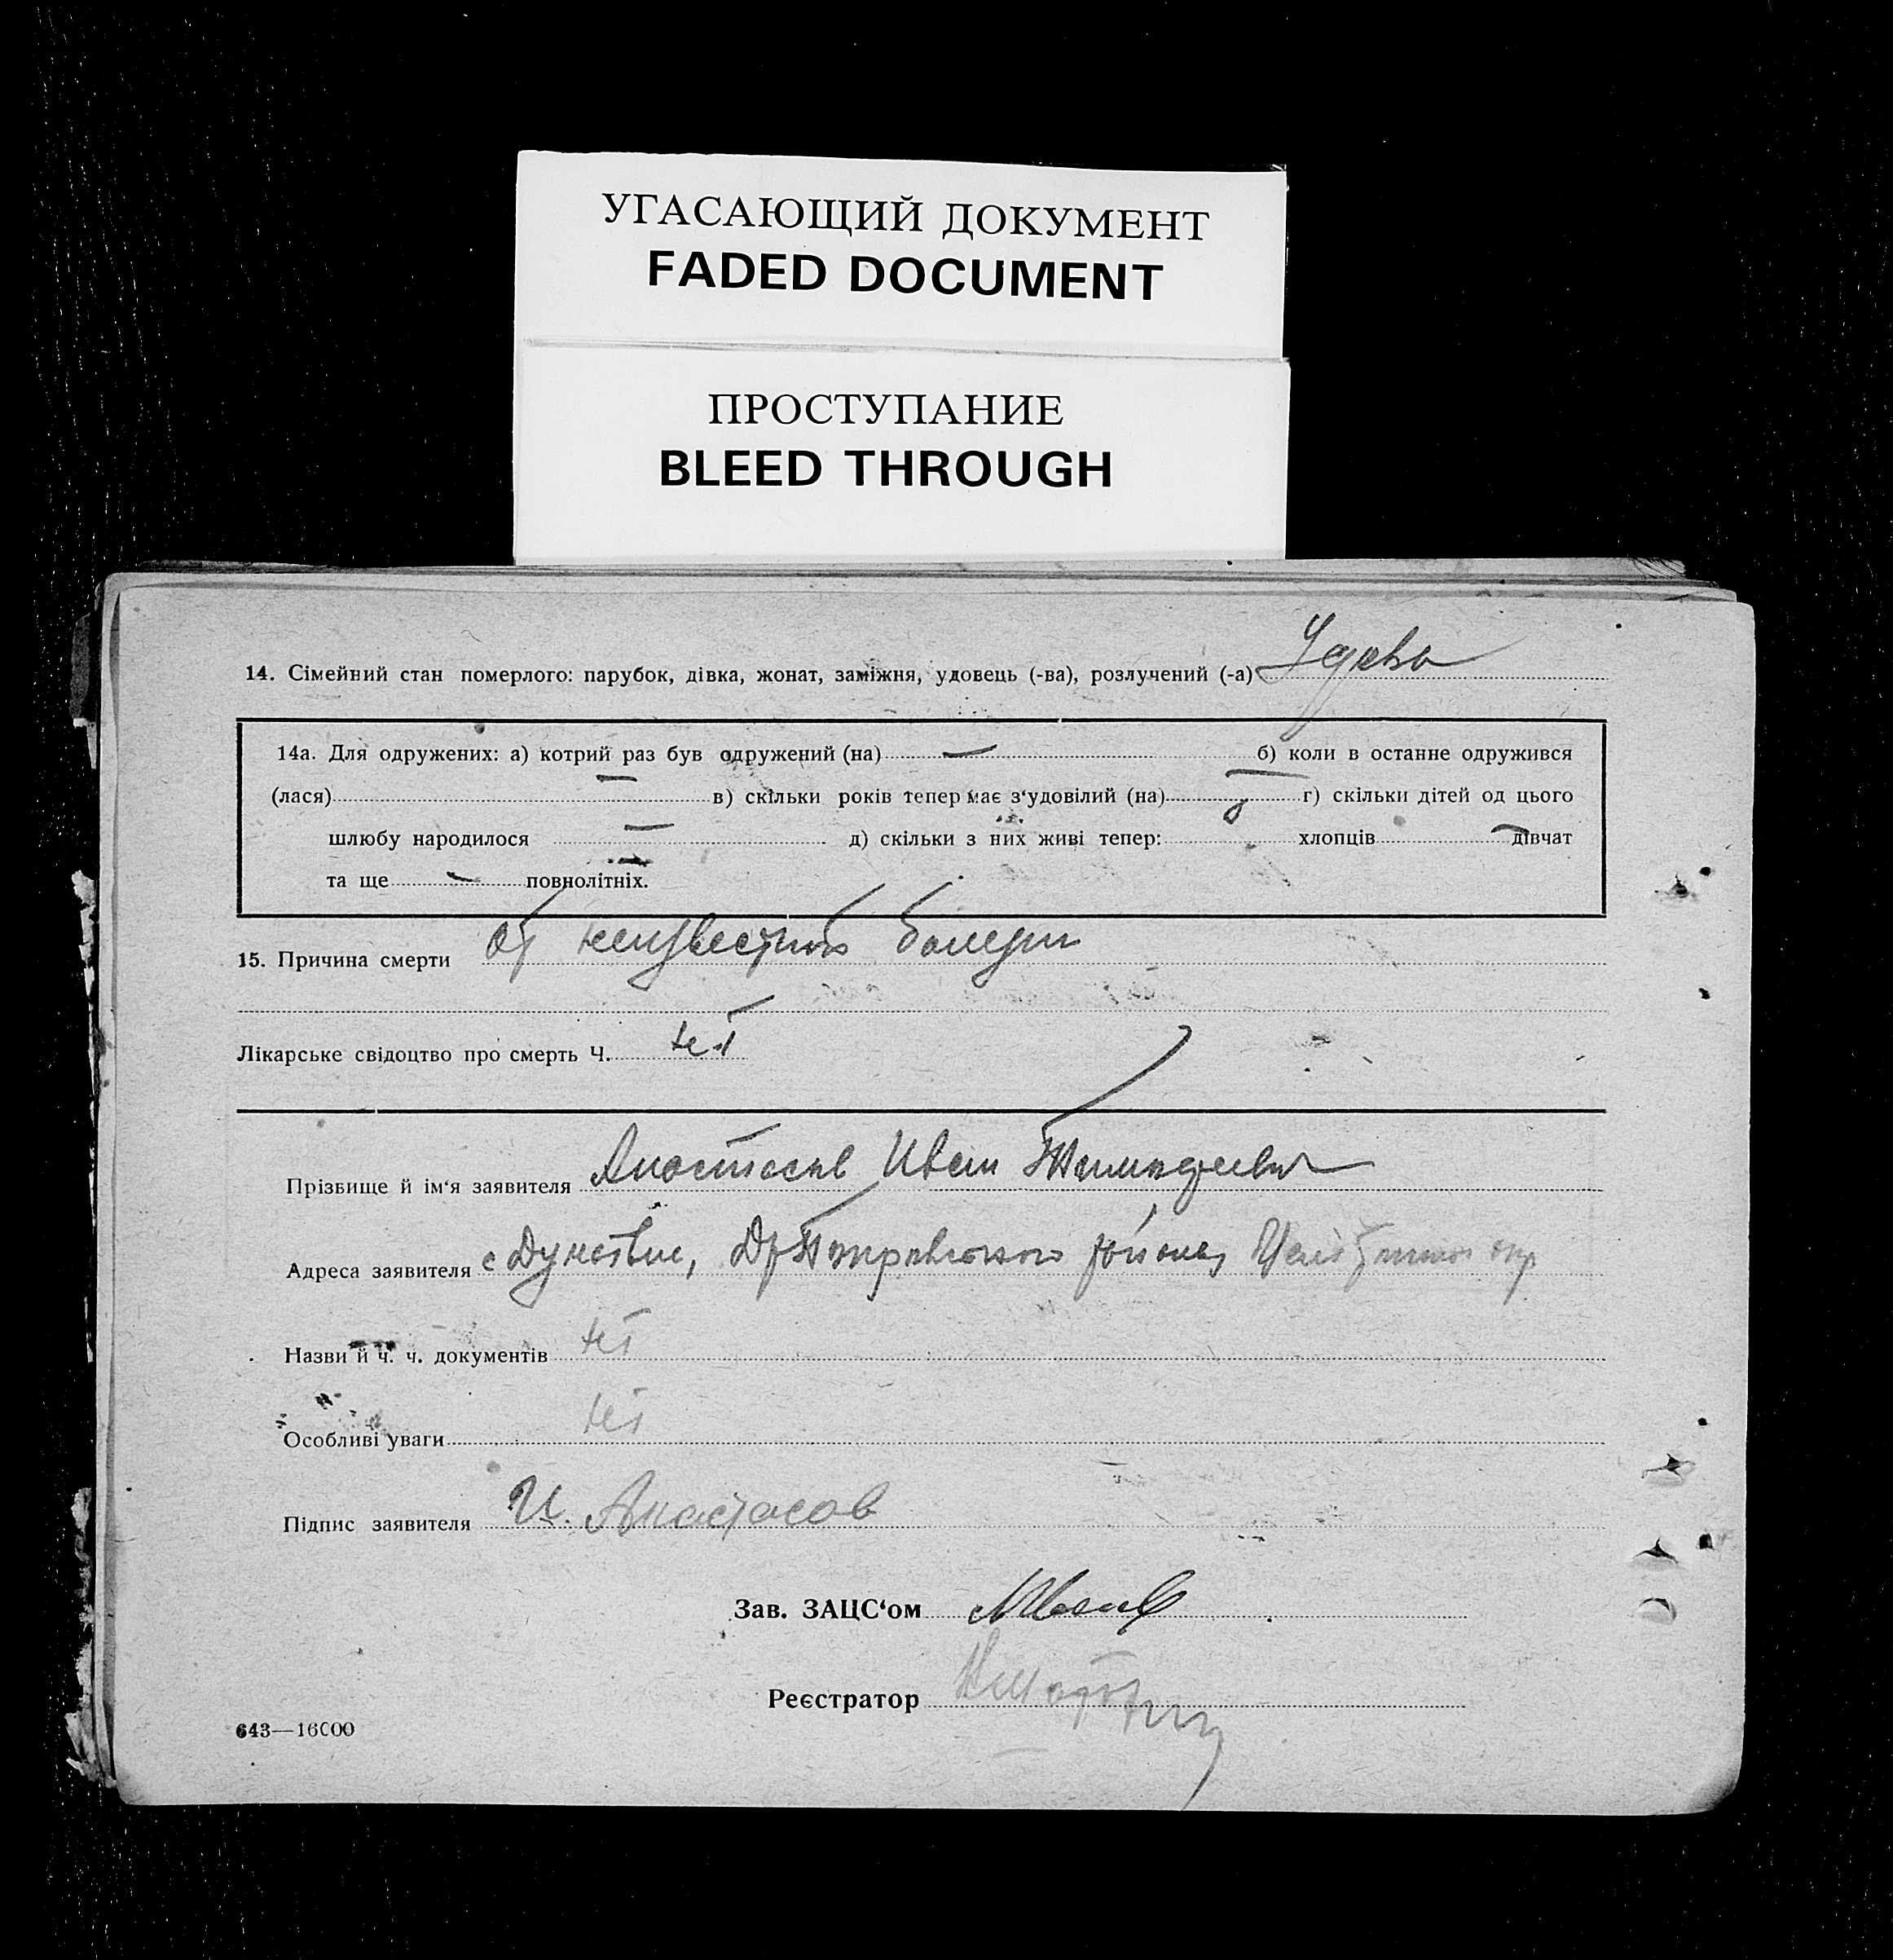 УГАСАЮЩИЙ ДОКУМЕНТ
FADED DOCUMENT
ПРОСТУПАНИЕ
BLEED THROUGH
14. Сімейний стан померлого: парубок, дівка, жонат, заміжня, удовець (-ва), розлучений (-а) Удова
14а. Для одружених: а) котрий раз був одружений (на) — б) коли в останнє одружився
(лася) — в) скільки років тепер має з‘удовілий (на) — г) скільки дітей од цього
шлюбу народилося — д) скільки з них живі тепер: хлопців — дівчат
та ще — повнолітніх.
15. Причина смерти от неизвестной болезни
Лікарське свідоцтво про смерть Ч. нет
Прізвище й ім‘я заявителя Анастасов Иван
Адреса заявителя с района,
Назви й ч. ч. документів нет
Особливі уваги нет
Підпис заявителя И. Анастасов
Зав. ЗАЦС‘ом
Реєстратор
643—16000